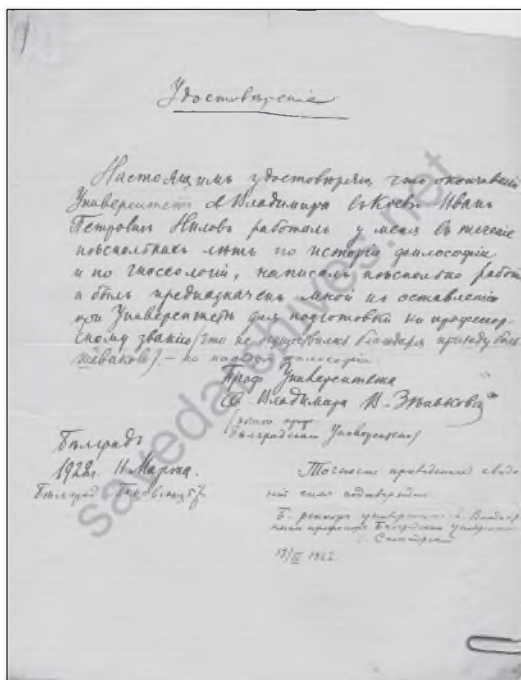 Удостовѣренiе
Настоящимъ удостовѣряю, что окончившiй
Университетъ Св Владимира въ Кiевѣ Иванъ
Петровичъ Ниловъ работалъ у меня въ теченiе
нѣсколькихъ лѣтъ по исторiи философiи
и по гносеологiи, написалъ нѣсколько работъ
и былъ предназначенъ мной къ оставленiю
при Университетѣ для подготовки къ профессор-
скому званiю (что не осуществилось благодаря приходу боль-
шевиковъ) – по кафедрѣ философiи.
Проф Университета
Св. Владимира В. Зѣньковскiй
Бѣлградскаго Университета)
Бѣлградъ
1922г. 11 Марта.
Бѣлград
Точность приведенныхъ свѣдѣ-
нiй симъ подтверждаю
Б. ректоръ университета св. Владимiра
профессоръ Бѣлградскаго университета
13/III 1922
savedarchives.net